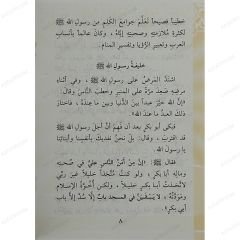 خطيباً فصيحاً تعلّم جوامع الكلم من رسول الله ﷺ
لكثرة ملازمته وصحبته إيّاه، وكان عالماً بأنساب
العرب وتعبير الرّؤيا وتفسير المنام.
خليفة رسول الله ﷺ
اشتدّ المرض على رسول الله ﷺ، وفي أثناء
مرضه صعد مرّة على المنبر وخطب النّاس وقال:
«إنّ الله خيّر عبداً بين الدّنيا وبين ما عنده، فاختار
ذلك العبد ما عند الله»
فبكى أبو بكر بعد أن فهم أنّ أجل رسول الله
ﷺ قد اقترب، وقال: بل نحن نفديك بأنفسنا وأبنائنا
يا رسول الله.
فقال ﷺ: «إنّ من أمنّ النّاس عليّ في صحبته
وماله أبا بكر، ولو كنت متّخذاً خليلاً غير ربّي
لاتّخذت أبا بكر خليلاً، ولكن أخوّة الإسلام
ومودّته، لا يبقينّ في المسجد باب إلّا سدّ إلّا باب
أبي بكر».
٨